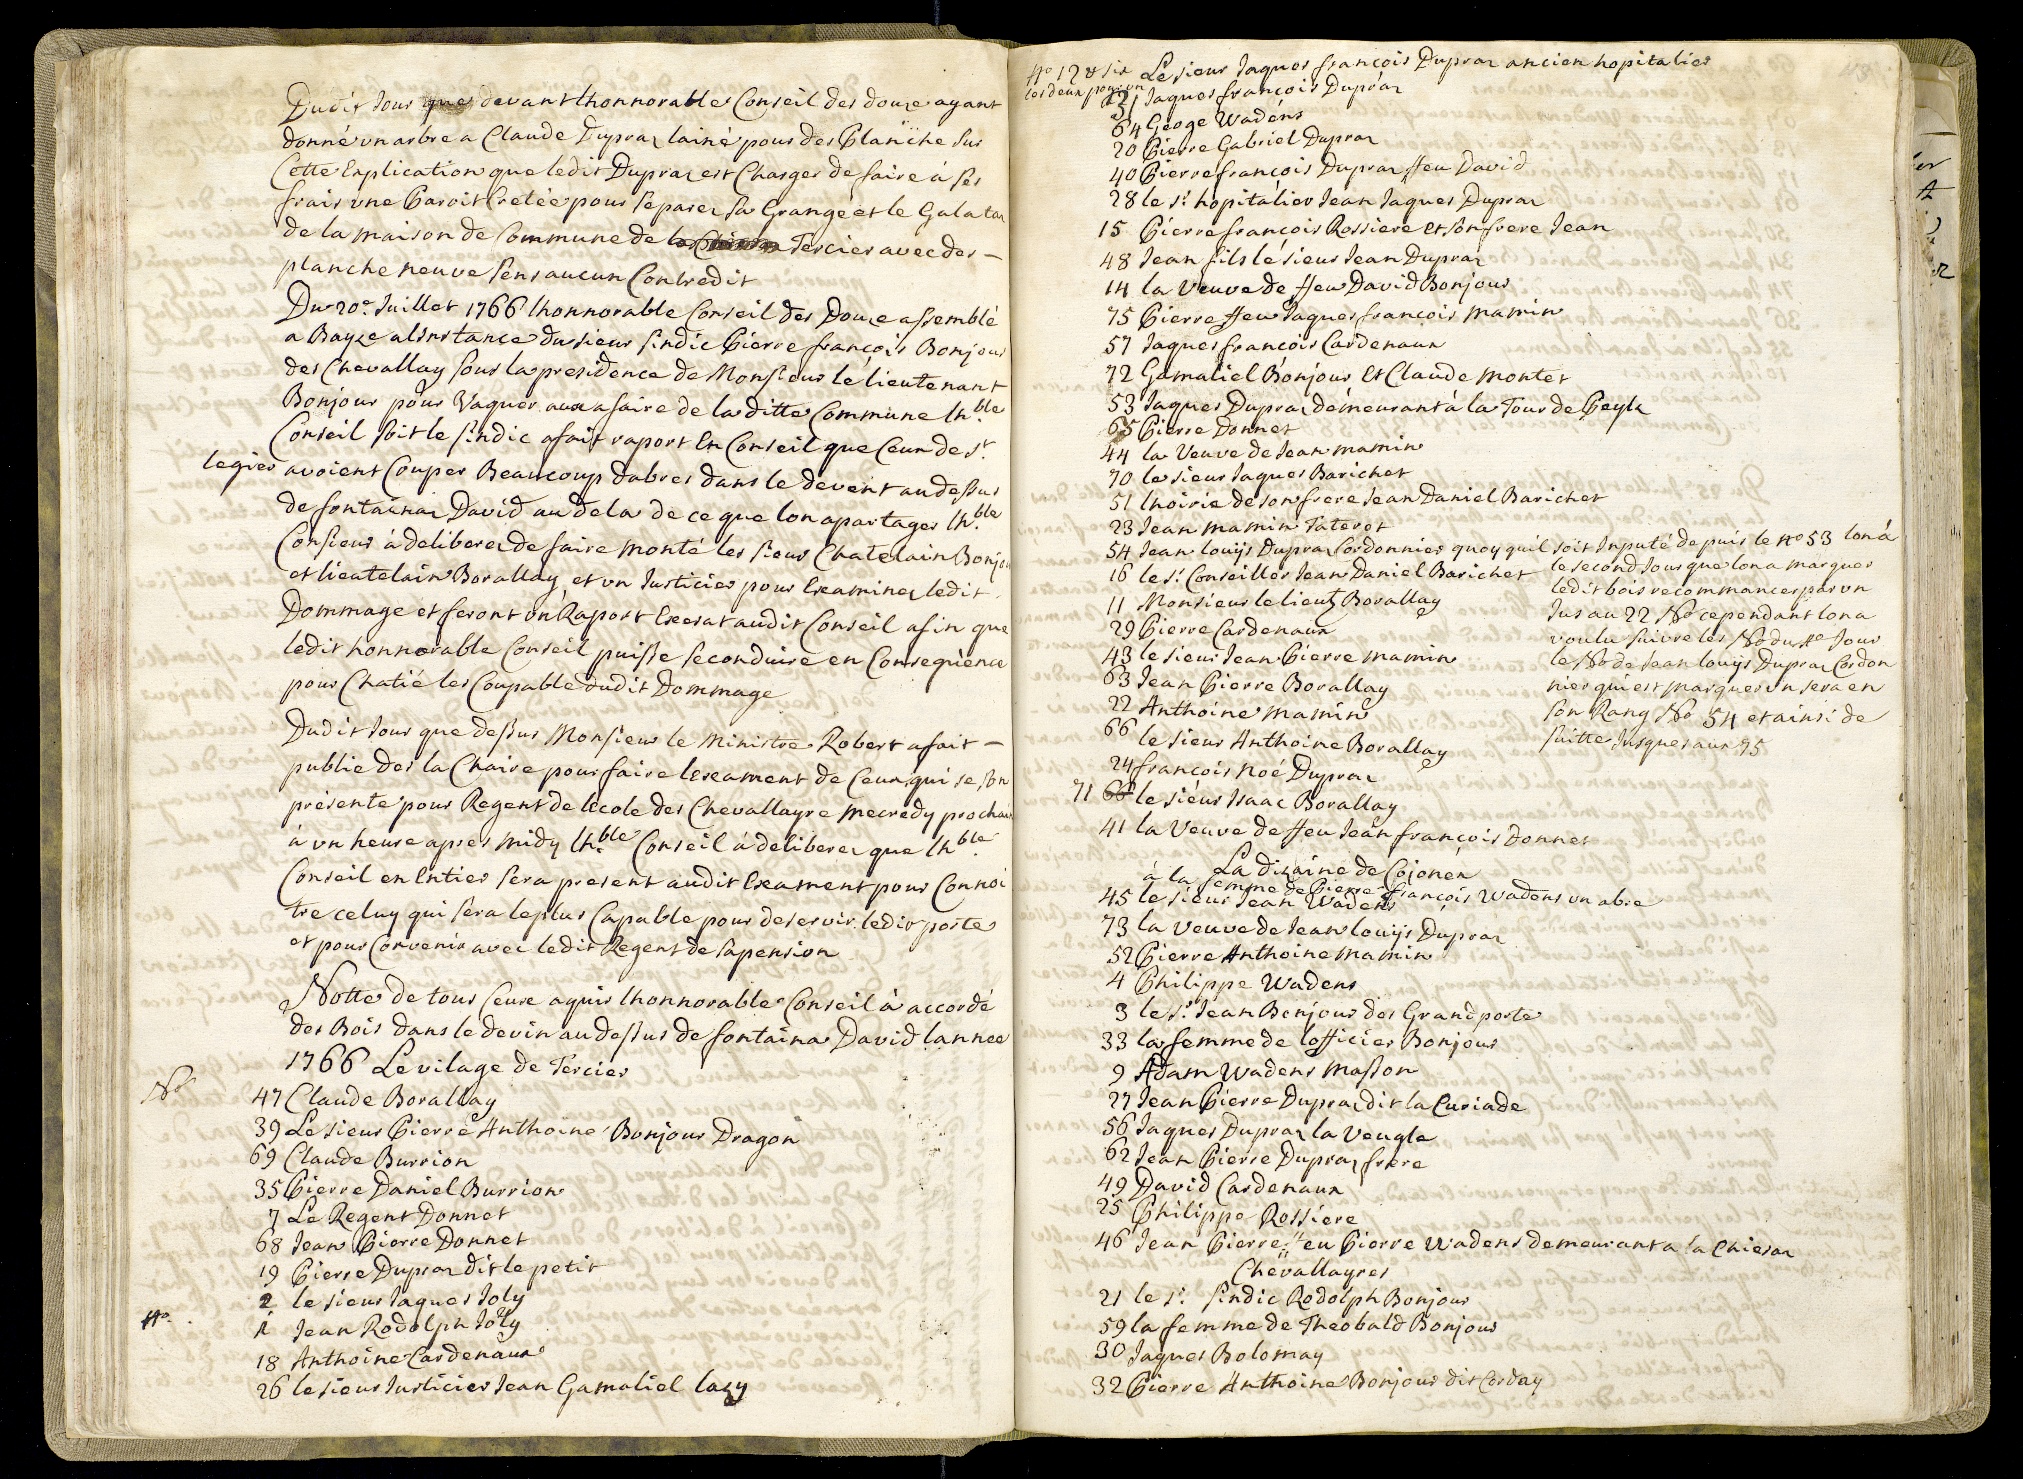 Dudit Jour que devant lhonnorable Conseil des douze ayant
donné un arbre a Claude Dupraz lainé pour des Planche sur
Cette Explication que ledit Dupraz est Charger de faire à ses
frais une Paroit Cretée pour separer sa Grange et le Galatas
de la maison de Commune de Tercier avec des
planche neuve sens aucun Contredit
Du 20e. Juillet 1766 lhonnorable Conseil des Douze assemblé
a Bayze alinstance du sieur sindic Pierre françois Bonjour
des Chevallay sous la presidence de Monsieur le lieutenant
Bonjour pour Vaquer aux afaire de la ditte Commune lh.ble
Conseil soit le sindic a fait raport En Conseil que Ceux de St.
legier avoient Couper Beaucoup dabres dans le devent au dessus
de fontainaz David au dela de ce que lon a partager lh.ble
Consieur à deliberer de faire monté les sieur Chatelain Bonjour
et lieutelain Borallay et un Justicier pour Examiner ledit
Dommage et feront un Raport Exesat audit Conseil afin que
ledit honnorable Conseil puisse se conduire en Conseqience
pour Chatié les Coupable dudit Dommage
Dudit Jour que dessus Monsieur le Ministre Robert a fait
publie des la Chaire pour faire lexament de Ceux qui se son
présenté pour Regent de lécole des Chevallayre mecredy prochain
à un heure apres midy lh.ble Conseil à deliberer que lh.ble
Conseil en Entier sera present audit Exament pour Connoi
tre celuy qui sera le plus Capable pour deservir ledit poste
et pour Convenir avec ledit Regent de sa pension
Notte de tous Ceux a quis lhonnorable Conseil à accordé
des Bois dans le devin au dessus de fontaina David lannee
1766 Le vilage de Tercier
No
47 Claude Borallay
39 Le sieur Pierre Anthoine Bonjour Dragon
69 Claude Burrion
35 Pierre Daniel Burrion
7 Le Regent Donnet
68 Jean Pierre Donnet
19 Pierre Dupraz dit le petit
2 le sieur Jaques Joly
No. 1 Jean Rodolph Joly
18 Anthoine Cardenaux
26 le sieur Justicier Jean Gamaliel lazy
No 12 & six Le sieur Jaques françois Dupraz ancien hopitalier
les deux pour un
31 Jaques françois Dupráz
64 Geoge Wadens
20 Pierre Gabriel Dupraz
40 Pierre françois Dupraz ffeu David
28 le sr. hopitálier Jean Jaques Dupraz
15 Pierre françois Rossiere et son frere Jean
48 Jean fils lé sieur Jean Dupraz
14 la Veuve de ffeu David Bonjour
75 Pierre ffeu Jaques françois Mamin
57 Jaques françois Cardenaux
72 Gamaliel Bonjour Et Claude Montet
53 Jaques Dupraz démeurant à la Tour de Peylz
65 Pierre Donnet
44 la Veuve de Jean mamin
70 le sieur Jaques Barichet
51 lhoirie de son frere Jean Daniel Barichet
23 Jean Mamin Taterot
54 Jean louijs Dupraz Cordonnier quoy quil soit Inputé depuis le No 53 lon à
le second Jour que lona marquer
ledit bois recommancer par un
Jus au 22 No cependant lon a
voulu suivre les No du 1e Jour
le No de Jean louijs Dupraz Cordon
nier qui est marquer un sera en
son Rang No 54 et ainsi de
suitte Jusques aux 75
16 le sr. Conseiller Jean Daniel Barichet
11 Monsieur le lieut Borallay
29 Pierre Cardenaux
43 le sieur Jean Pierre mamin
63 Jean Pierre Borallay
22 Anthoine Mamin
66 le sieur Anthoine Borallay
24 françois Noé Dupraz
71 le siéur Isaac Borallay
41 la Veuve de ffeu Jean françois Donnet
La dizaine de Cojonex
à la femme de Pierre françois Wadens un abre
45 le sieur Jean Wadens
73 la Veuve de Jean louijs Dupraz
52 Pierre Anthoine Mamin
4 Philippe Wadens
3 le sr. Jean Bonjour des Grand porte
33 la femme de lofficier Bonjour
9 Adam Wadens Masson
27 Jean Pierre Dupraz dit la Curiade
56 Jaques Dupraz la Veugle
62 Jean Pierre Dupraz frere
49 David Cardenaux
25 Philippe Rossiere
46 Jean Pierre ffeu Pierre Wadens demeurant a la Chiesaz
Chevallayres
21 le sr. sindic Rodolph Bonjour
59 la femme de Théobald Bonjour
30 Jaques Bolomay
32 Pierre Anthoine Bonjour dit Corday